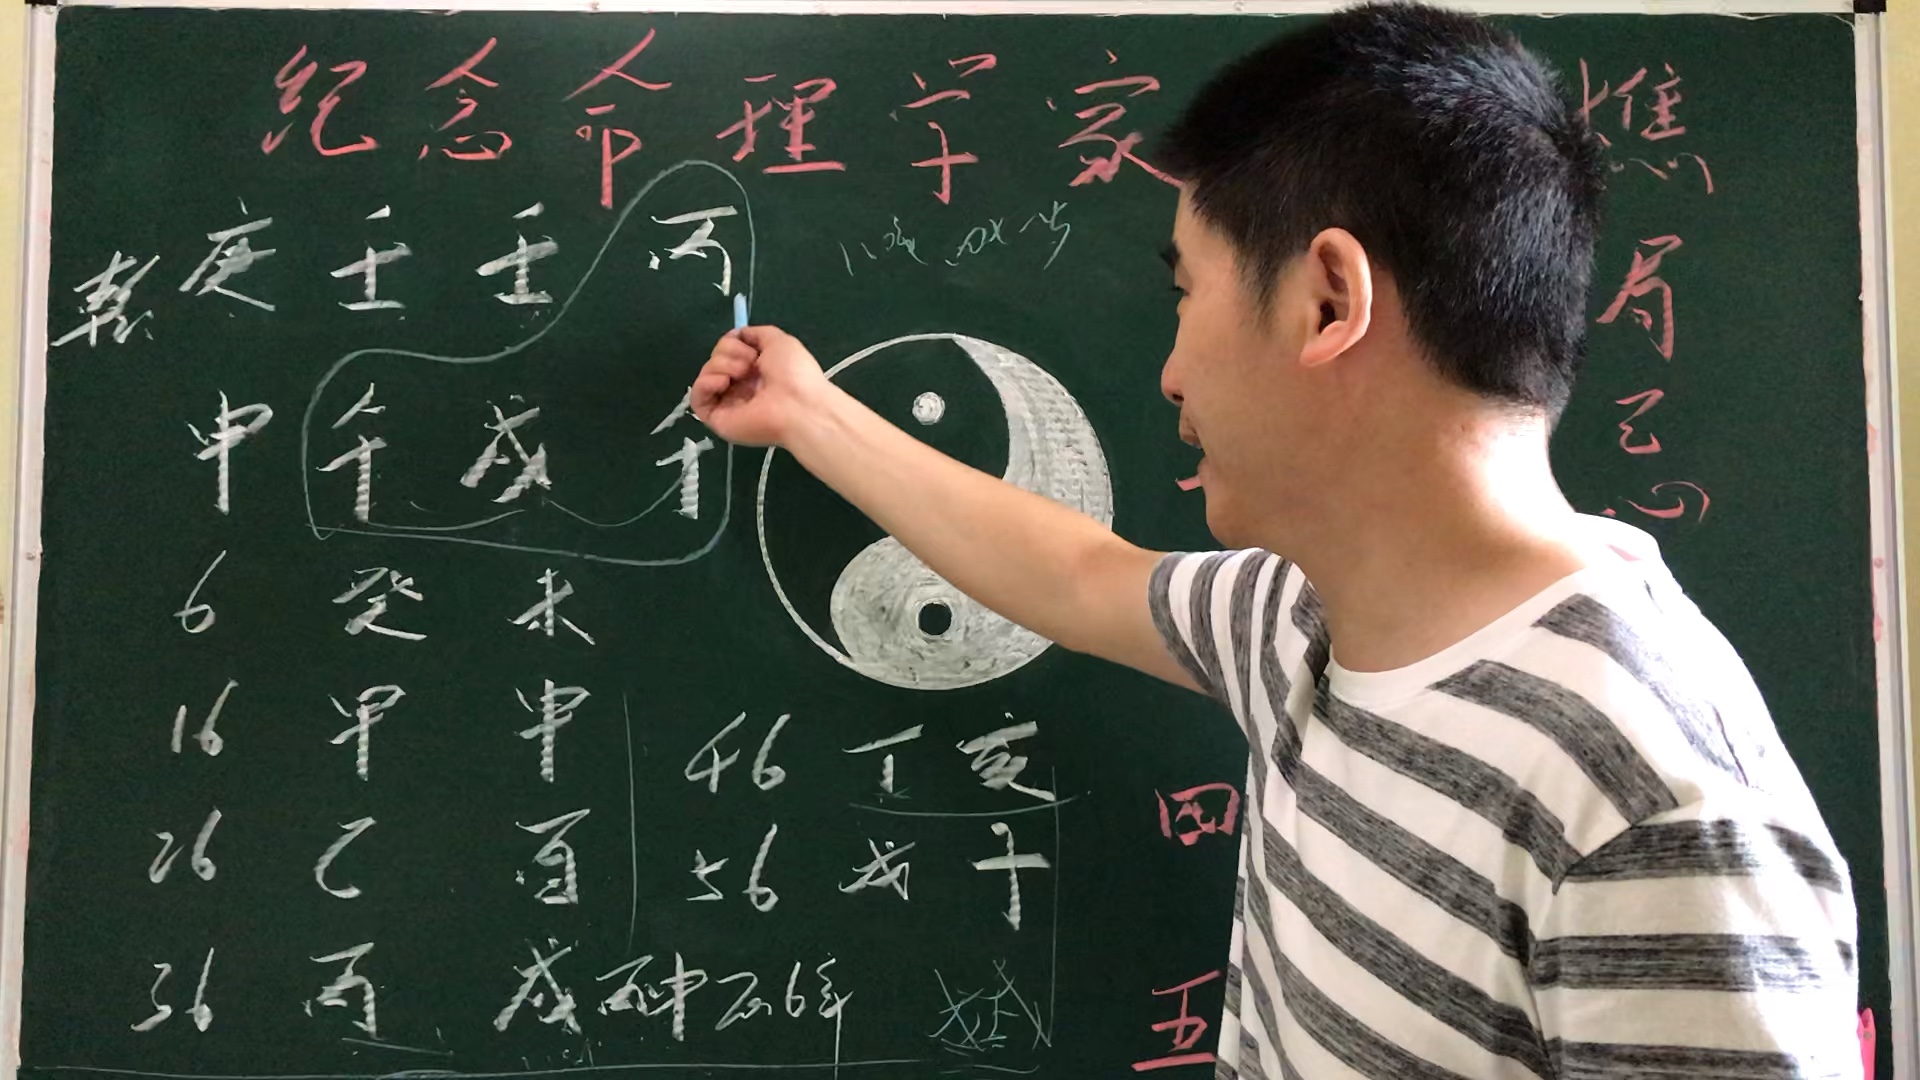 纪念命理学家
乾 庚 壬 壬 丙
申 午 戌 午
6 癸 未
16 甲 申
26 乙 酉
36 丙 戌 丙申 2016年
46 丁 亥
56 戊 子
憔
局
己
心
四
五